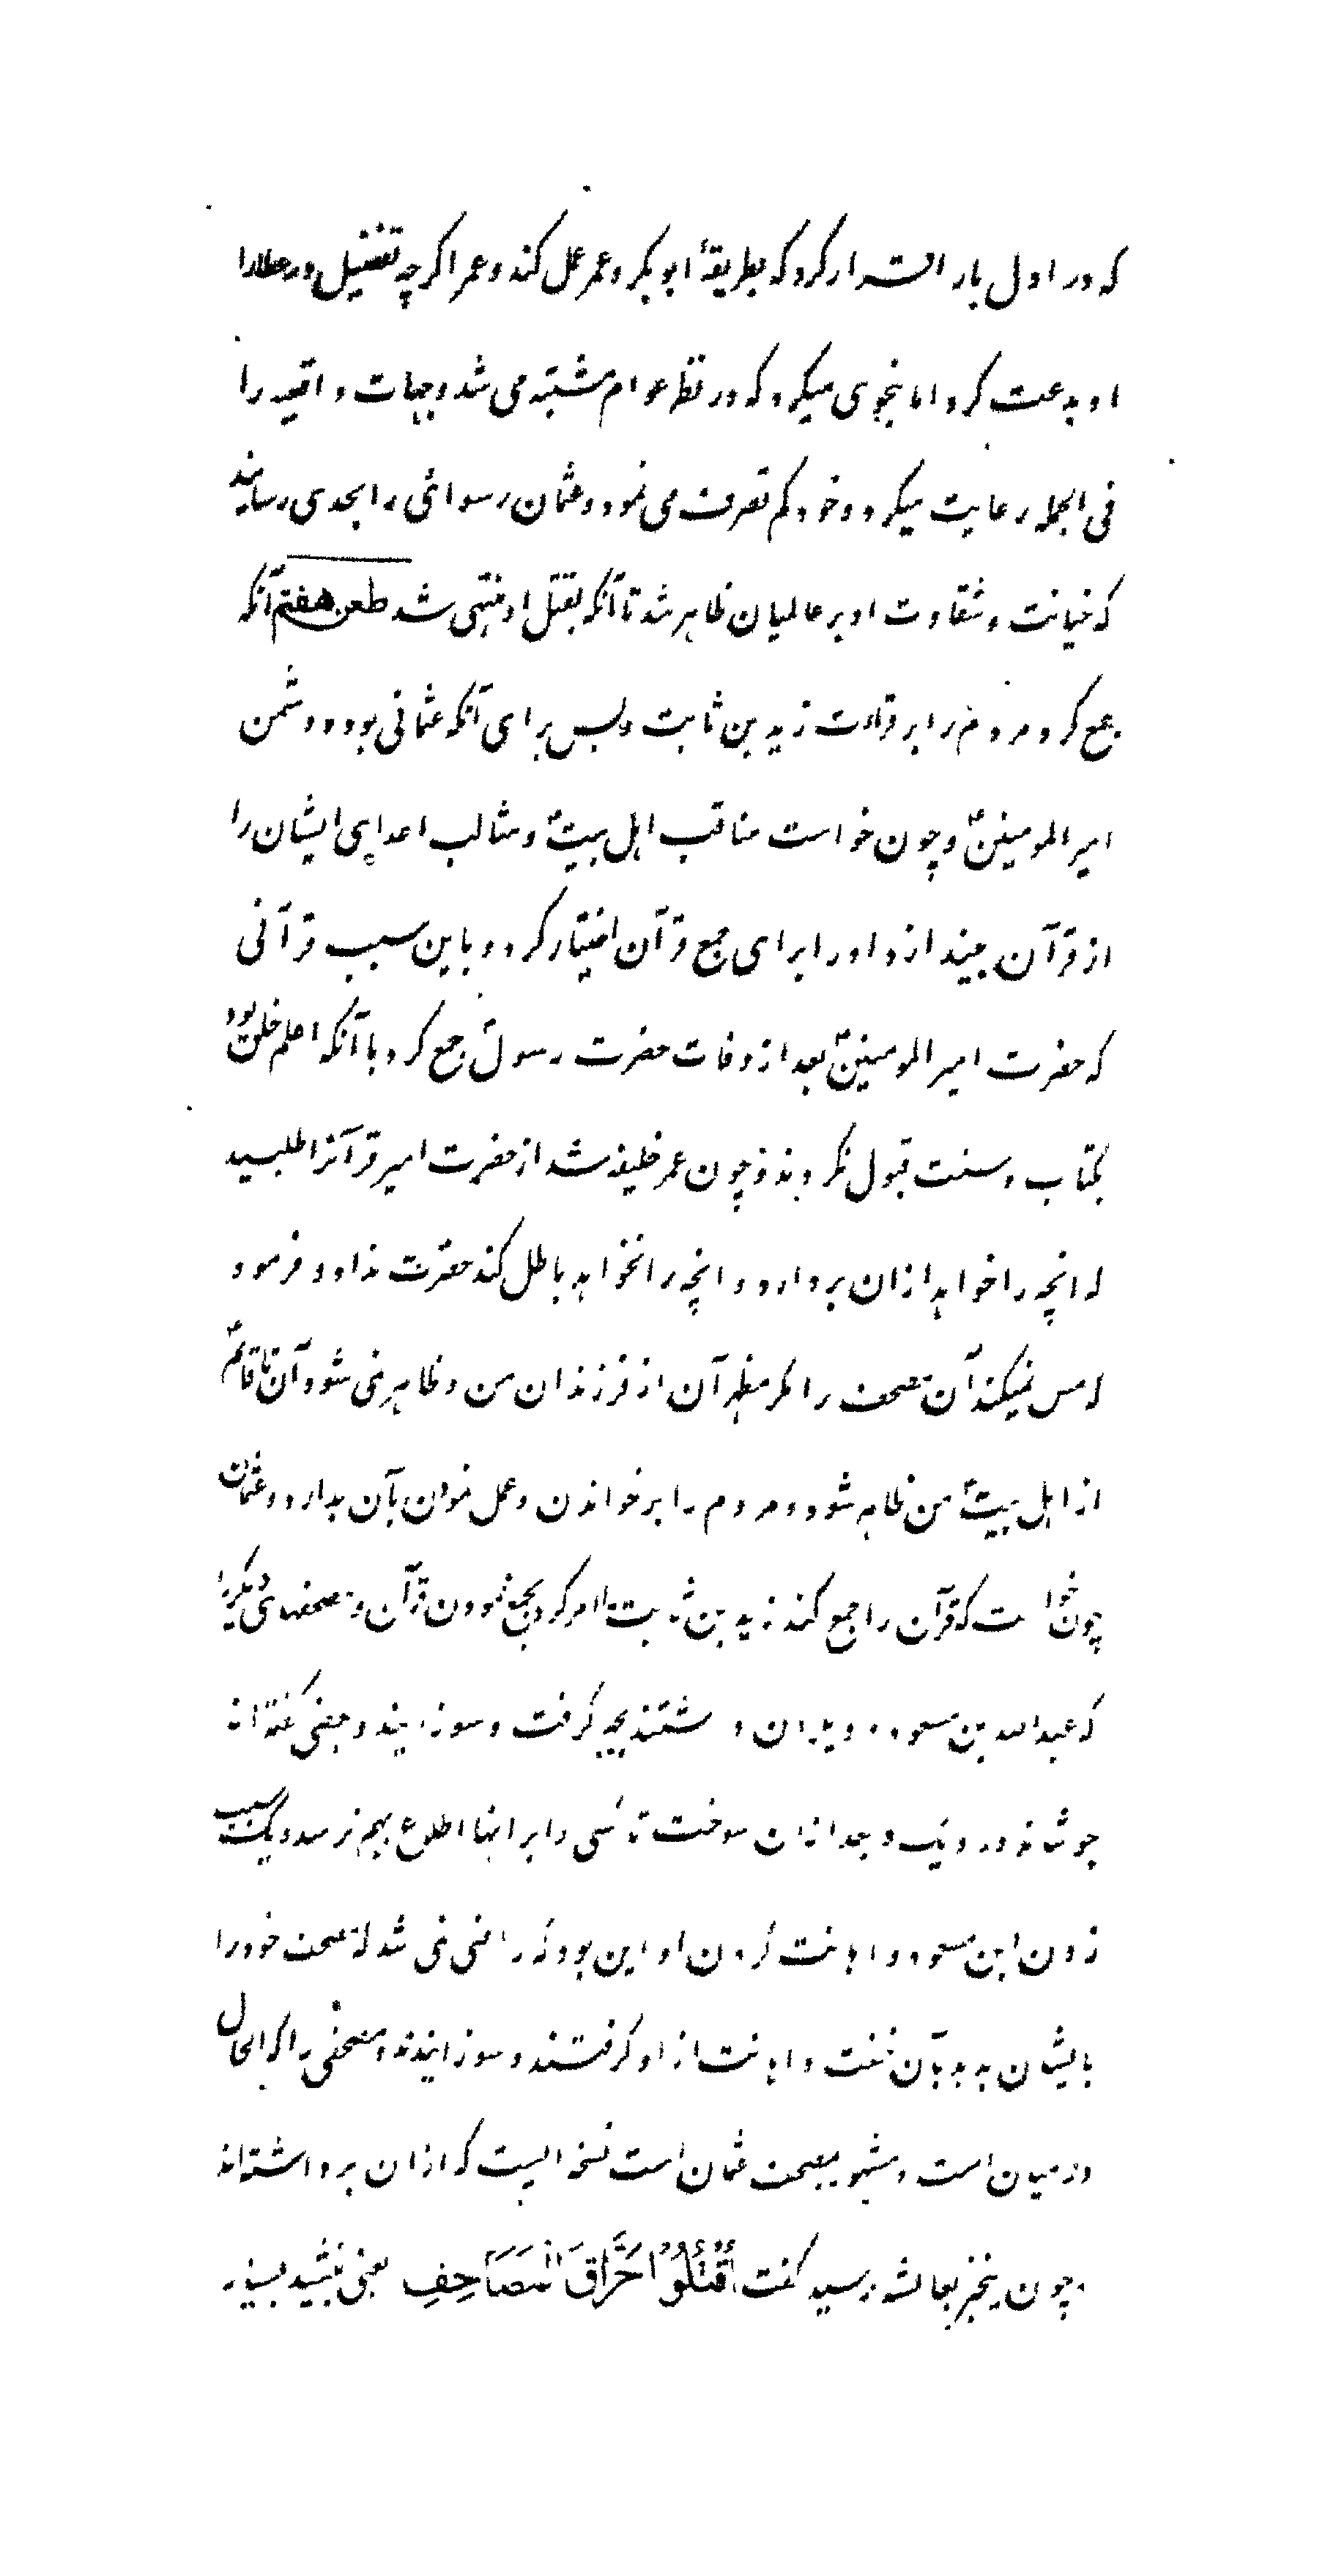 که در اول بار اقرار کرد که بطریقهٔ ابو بکر و عمر عمل کند و عمر اگرچه تفضیل در عطا را
او بدعت کرد اما بنحوی میکرد که در نظر عوام مشتبه می شد و جهات واقعیه را
فی الجمله رعایت میکرد و خود کم تصرف می نمود و عثمان رسوائی را بحدی رسانید
که خیانت و شقاوت او بر عالمیان ظاهر شد تا آنکه بقتل او منتهی شد طعن هفتم آنکه
جمع کرد مردم را بر قرائت زید بن ثابت و بس برای آنکه عثمانی بود و دشمن
امیر المومنینؑ و چون خواست مناقب اهل بیتؑ و مثالب اعدای ایشان را
از قرآن بیندازد او را برای جمع قرآن اختیار کرد و باین سبب قرآنی
که حضرت امیر المومنینؑ بعد از وفات حضرت رسولؐ جمع کرد با آنکه اعلم خلق بود
بکتاب و سنت قبول نکردند و چون عمر خلیفه شد از حضرت امیر قرآنرا طلبید
که انچه را خواهد ازان بردارد و انچه را نخواهد باطل کند حضرت نداد و فرمود
که مس نمیکند آن مصحف را مگر مطهر آن از فرزندان من و ظاهر نمی شود آن تا قائمؑ
از اهل بیتؑ من ظاهر شود و مردم را بر خواندن و عمل نمودن بآن بدارد و عثمان
چون خواست که قرآن را جمع کند زید بن ثابت را امر کرد بجمع نمودن قرآن و مصحفهای دیگر را
که عبدالله بن مسعود و دیگران داشتند بجبر گرفت و سوزانید و بعضی گفته‌اند
جوشاند در دیگ و بعد ازان سوخت تا کسی را بر انها اطلاع بهم نرسد و یک سبب
زدن ابن مسعود و اهانت کردن او این بود که راضی نمی شد که مصحف خود را
بایشان بدهد بآن خفت و اهانت از او گرفتند و سوزانیدند و مصحفی را که الحال
در میان است و مشهور بمصحف عثمان است نسخه ایست که ازان برداشته‌اند
و چون اینخبر بعائشه رسید گفت اُقْتُلُوْا حَرَّاقَ الْمَصَاحِفِ یعنی بکشید بسیار